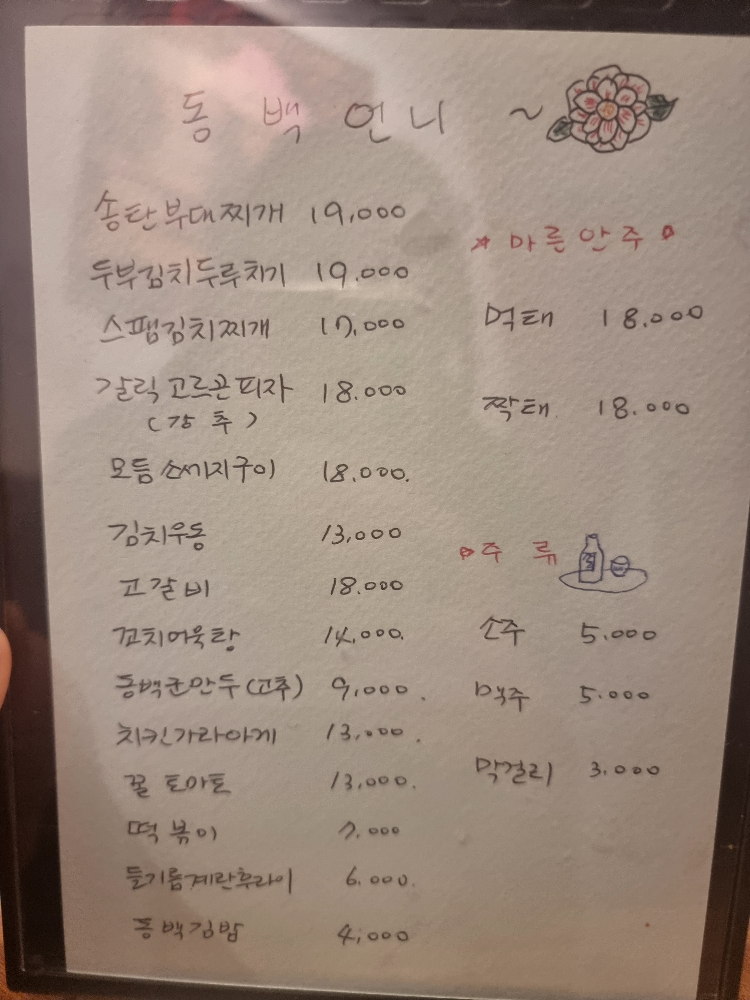 동백언니 ~
송탄부대찌개 19,000
두부김치두루치기 19.000
스팸김치찌개 17,000
갈릭고르곤피자 18.000
(강추)
모듬소세지구이 18,000.
김치우동 13,000
고갈비 18.000
꼬치어묵탕 14,000.
동백군만두(고추) 9,000.
치킨가라아게 13,000.
꿀토마토 13,000.
떡볶이 7.000
들기름계란후라이 6.000.
동백김밥 4,000
마른안주
먹태 18.000
짝태 18.000
주류
소주 5.000
맥주 5.000
막걸리 3.000